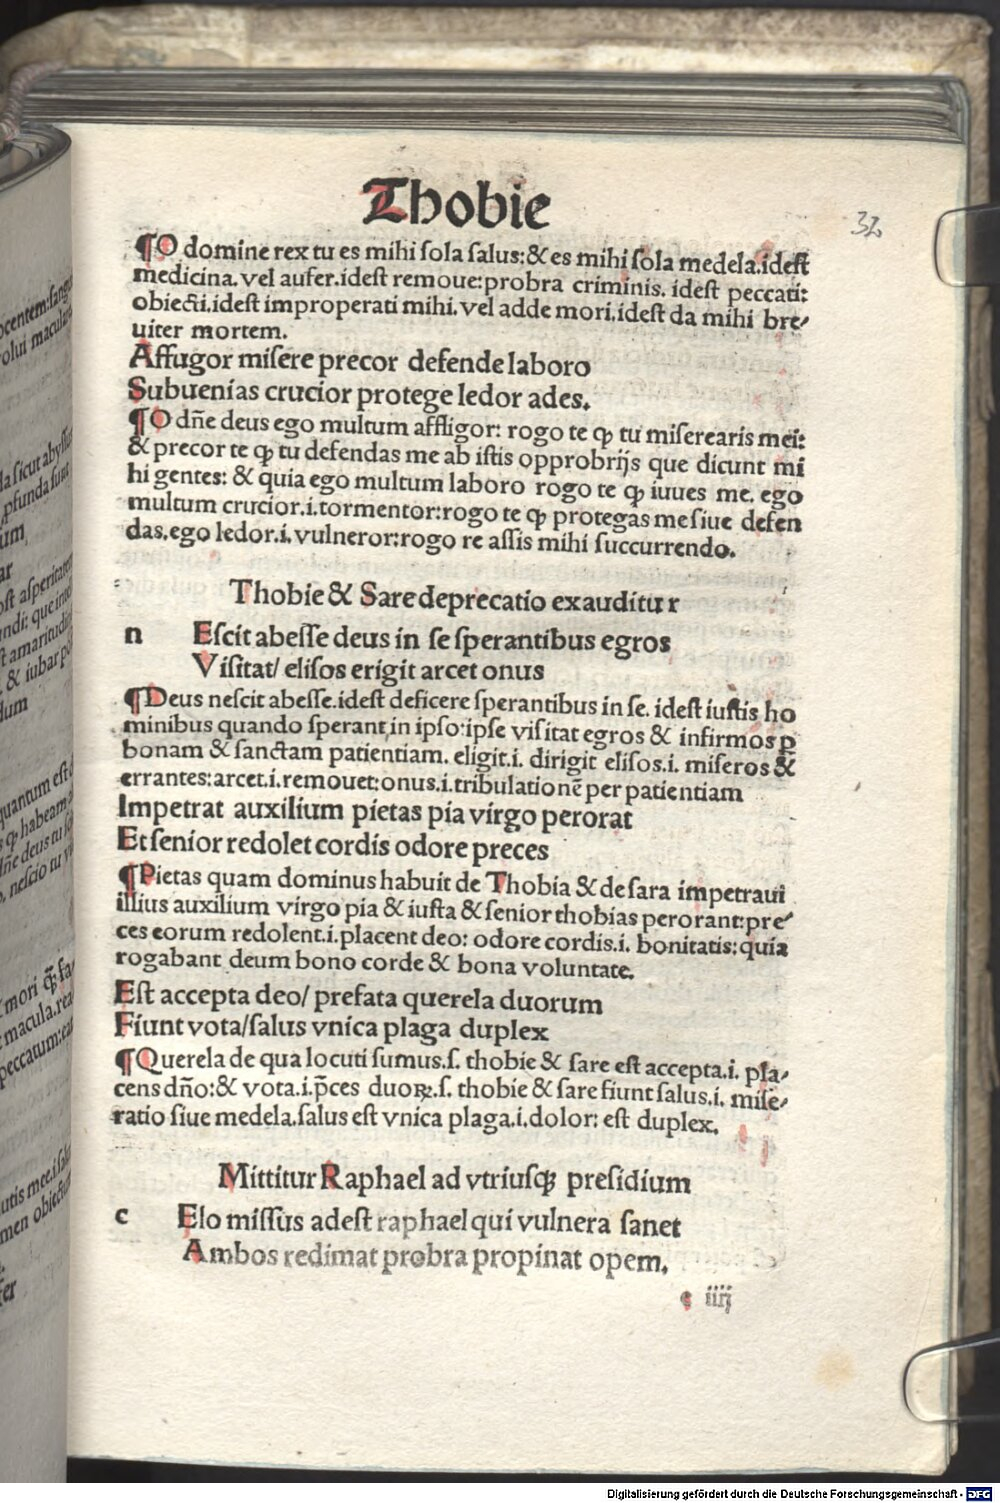 Thobie
32
¶O domine rex tu es mihi ſola ſalus:& es mihi ſola medela.ideſt
medicina. vel aufer.ideſt remoue:probra criminis. ideſt peccati:
obiecti.ideſt improperati mihi. vel adde mori.ideſt da mihi bre/
uiter mortem.
Affugor miſere precor defende laboro
Subuenias crucior protege ledor ades.
¶O dn̄e deus ego multum affligor: rogo te ꝙ tu miſerearis mei:
& precor te ꝙ tu defendas me ab iſtis opprobrijs que dicunt mi
hi gentes: & quia ego multum laboro rogo te ꝙ iuues me. ego
multum crucior.i.tormentor:rogo te ꝙ protegas me ſiue defen
das.ego ledor.i.vulneror:rogo re aſſis mihi ſuccurrendo.
Thobie & Sare deprecatio exauditur
n Eſcit abeſſe deus in ſe ſperantibus egros
Viſitat/ eliſos erigit arcet onus
¶Deus neſcit abeſſe.ideſt deficere ſperantibus in ſe. ideſt iuſtis ho
minibus quando ſperant in ipſo:ipſe viſitat egros & infirmos p̲
bonam & ſanctam patientiam. eligit.i. dirigit eliſos.i. miſeros &
errantes:arcet.i.remouet:onus.i.tribulationē per patientiam
Impetrat auxilium pietas pia virgo perorat
Et ſenior redolet cordis odore preces
¶Pietas quam dominus habuit de Thobia & de ſara impetraui
illius auxilium virgo pia & iuſta & ſenior thobias perorant:pre/
ces eorum redolent.i.placent deo: odore cordis.i. bonitatis:quia
rogabant deum bono corde & bona voluntate.
Eſt accepta deo/ prefata querela duorum
Fiunt vota/ſalus vnica plaga duplex
¶Querela de qua locuti ſumus.ſ. thobie & ſare eſt accepta.i. pla/
cens dn̄o:& vota.i.p̄ces duoꝝ.ſ. thobie & ſare fiunt ſalus.i. miſe/
ratio ſiue medela.ſalus eſt vnica plaga.i.dolor: eſt duplex.
Mittitur Raphael ad vtriuſqꝫ preſidium
c Elo miſſus adeſt raphael qui vulnera ſanet
Ambos redimat probra propinat opem.
e iiij
Digitalisierung gefördert durch die Deutsche Forschungsgemeinschaft - DFG